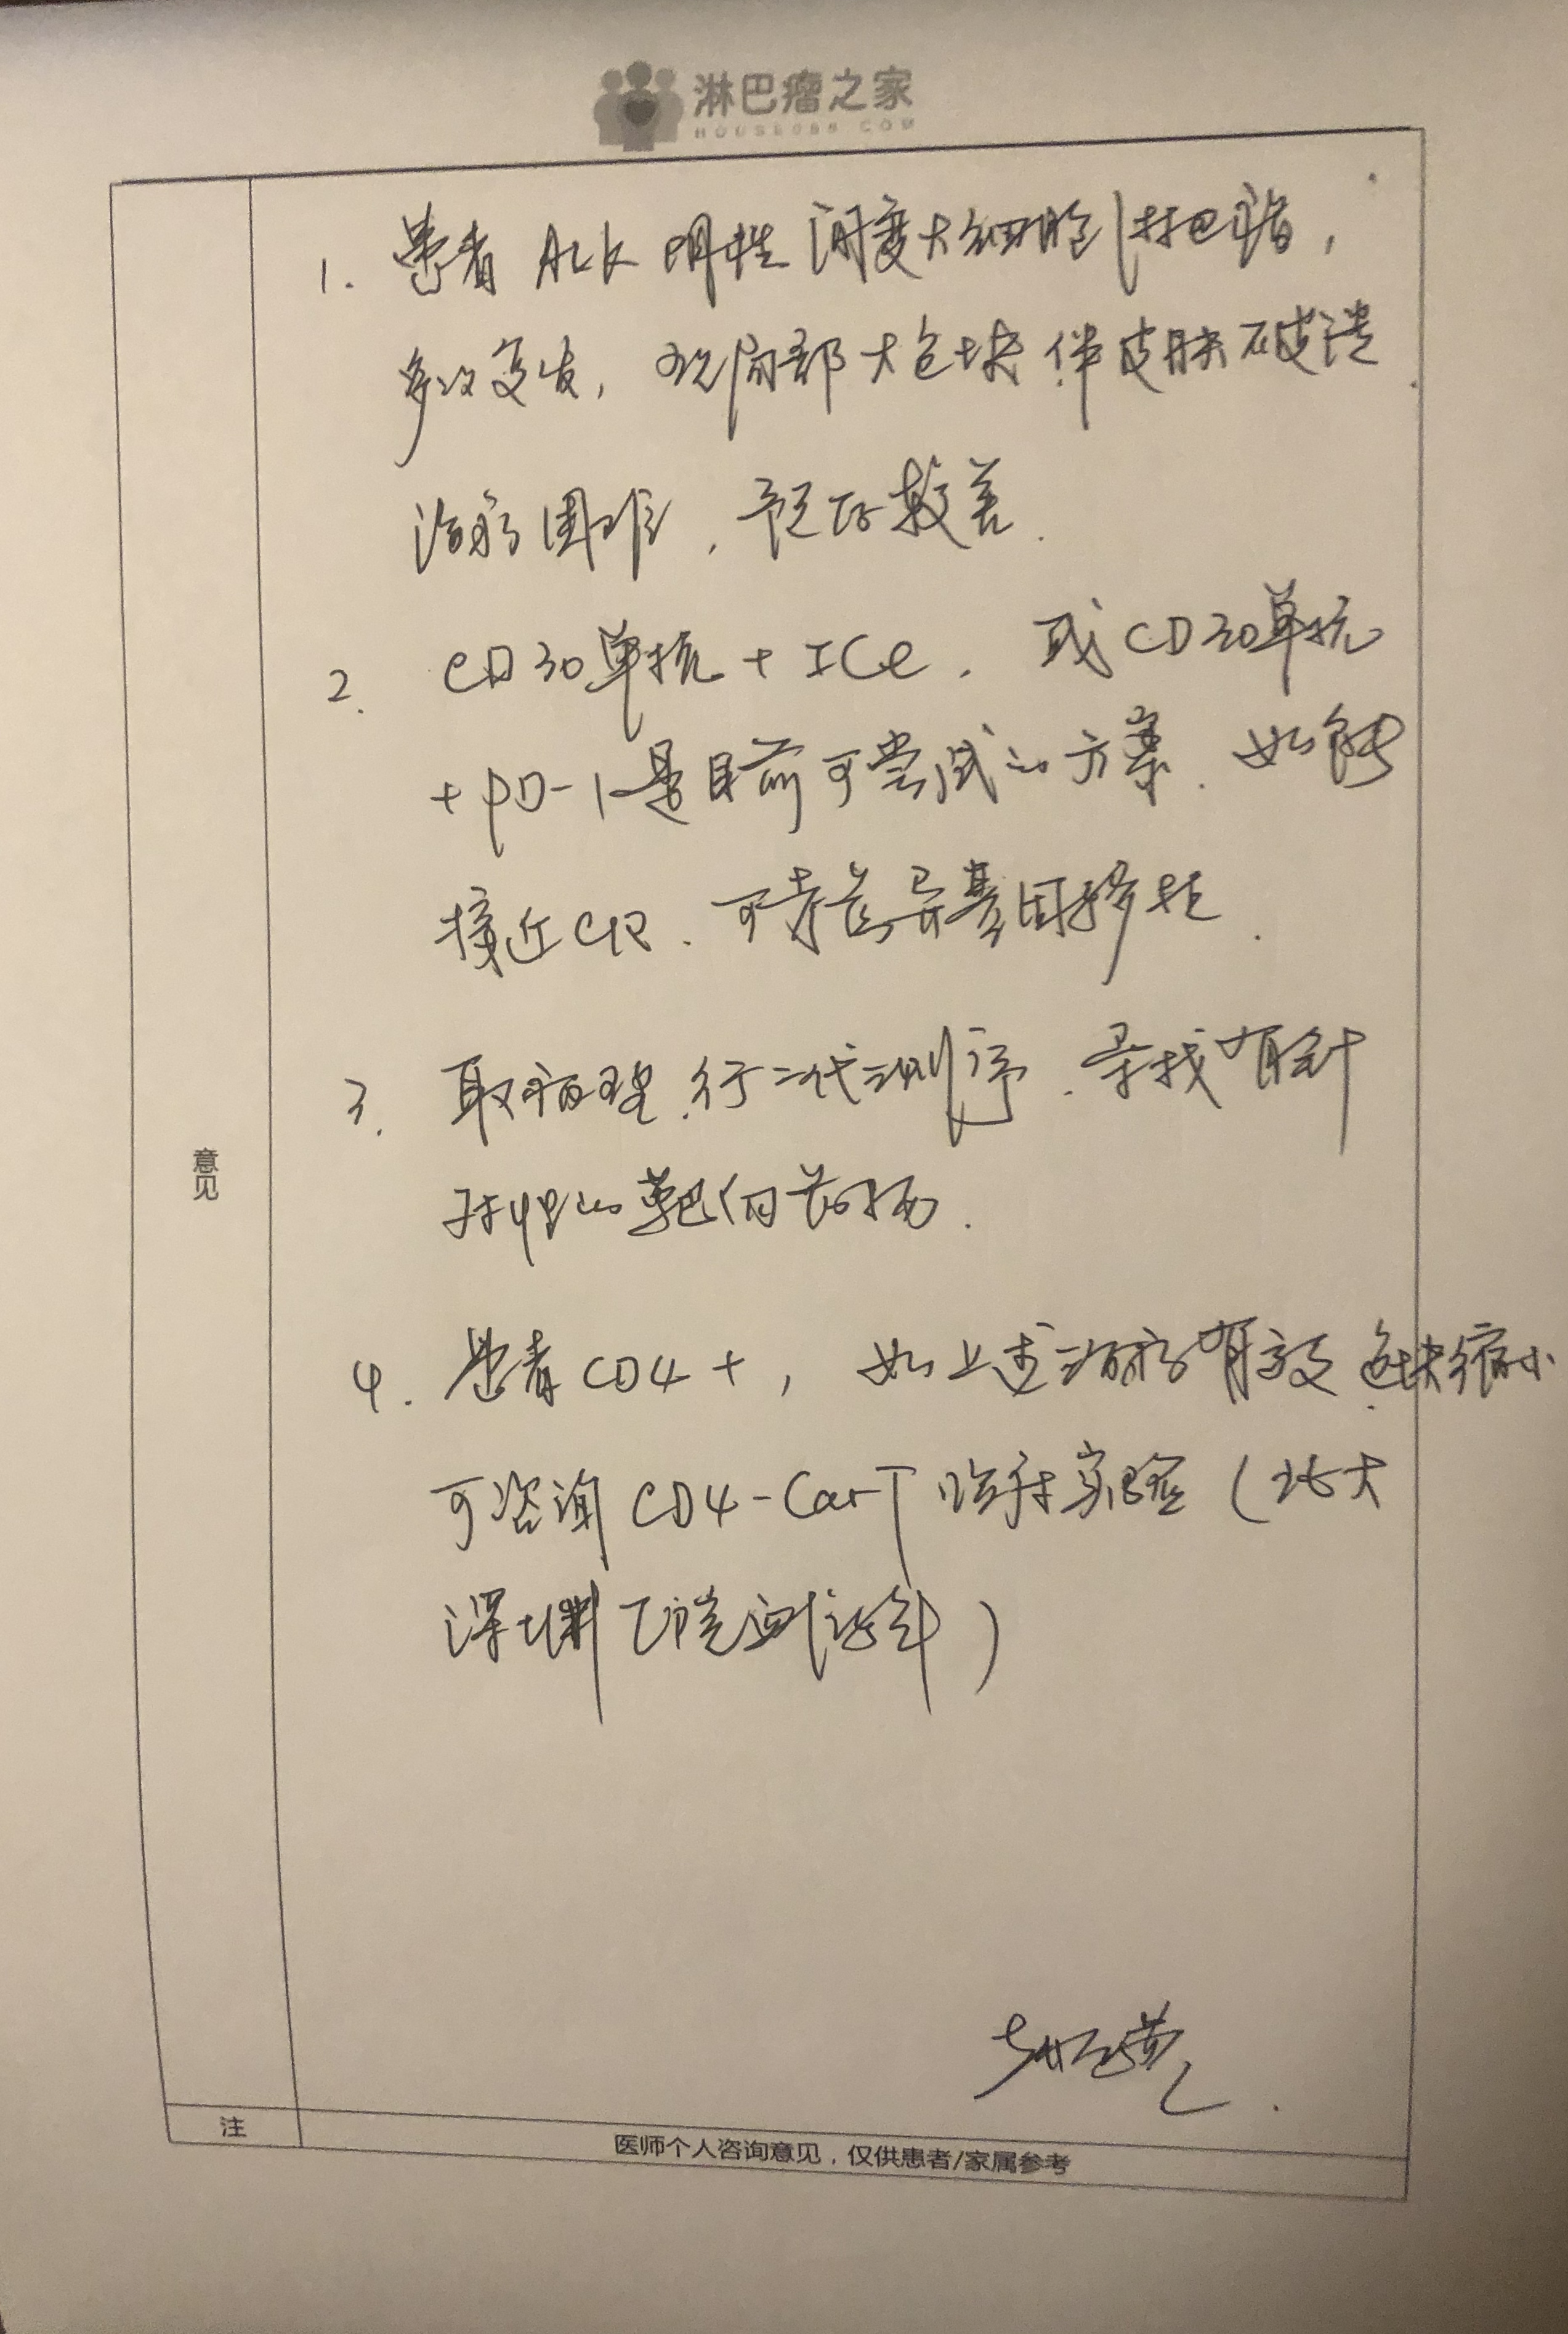 淋巴瘤之家
HOUSE086.COM
1. 患者 ALK 阴性 间变大细胞淋巴瘤，
多次复发，现局部大包块伴皮肤破溃
治疗困难，预后较差．
2. CD30单抗 + ICE．或CD30单抗
+ PD-1是目前可尝试的方案．如能
接近CR．可考虑异基因移植．
3. 取病理．行二代测序．寻找有针
对性的靶向药物．
意见
4. 患者CD4+，如上述治疗有效．包块缩小
可咨询CD4-CarT临床实验（北大
深圳医院血液科）
注
医师个人咨询意见，仅供患者/家属参考